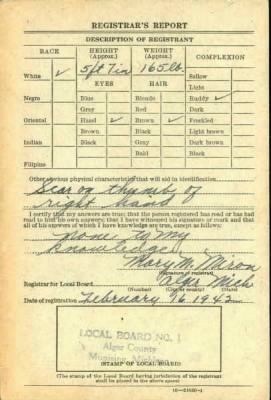 REGISTRAR'S REPORT
DESCRIPTION OF REGISTRANT
RACE HEIGHT (Approx.) WEIGHT (Approx.) COMPLEXION
5 ft 7 in 165 lb.
White ✓ EYES HAIR Sallow
Light
Negro Blue Blonde Ruddy ✓
Gray Red Dark
Oriental Hazel ✓ Brown ✓ Freckled
Brown Black Light brown
Indian Black Gray Dark brown
Bald Black
Filipino
Other obvious physical characteristics that will aid in identification
Scar on thumb of
right hand
I certify that my answers are true; that the person registered has read or has had
read to him his own answers; that I have witnessed his signature or mark and that
all of his answers of which I have knowledge are true, except as follows:
none to my
knowledge
Mary M. Miron
(Signature of registrar)
Registrar for Local Board Alger Mich
(Number) (City or county) (State)
Date of registration February 16 1942
LOCAL BOARD NO. 1
Alger County
Munising, Michigan
(STAMP OF LOCAL BOARD)
(The stamp of the Local Board having jurisdiction of the registrant
shall be placed in the above space)